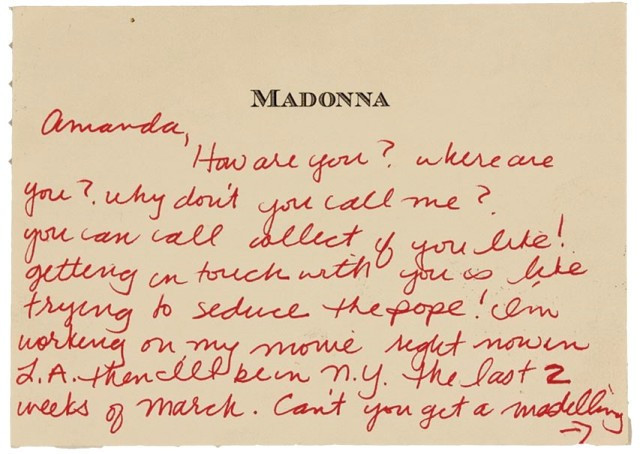 MADONNA
Amanda,
How are you? where are
you? why don't you call me?
you can call collect if you like!
getting in touch with you is like
trying to seduce the pope! I'm
working on my movie right now in
L.A. then I'll be in N.Y. the last 2
weeks of March. Can't you get a modelling
→